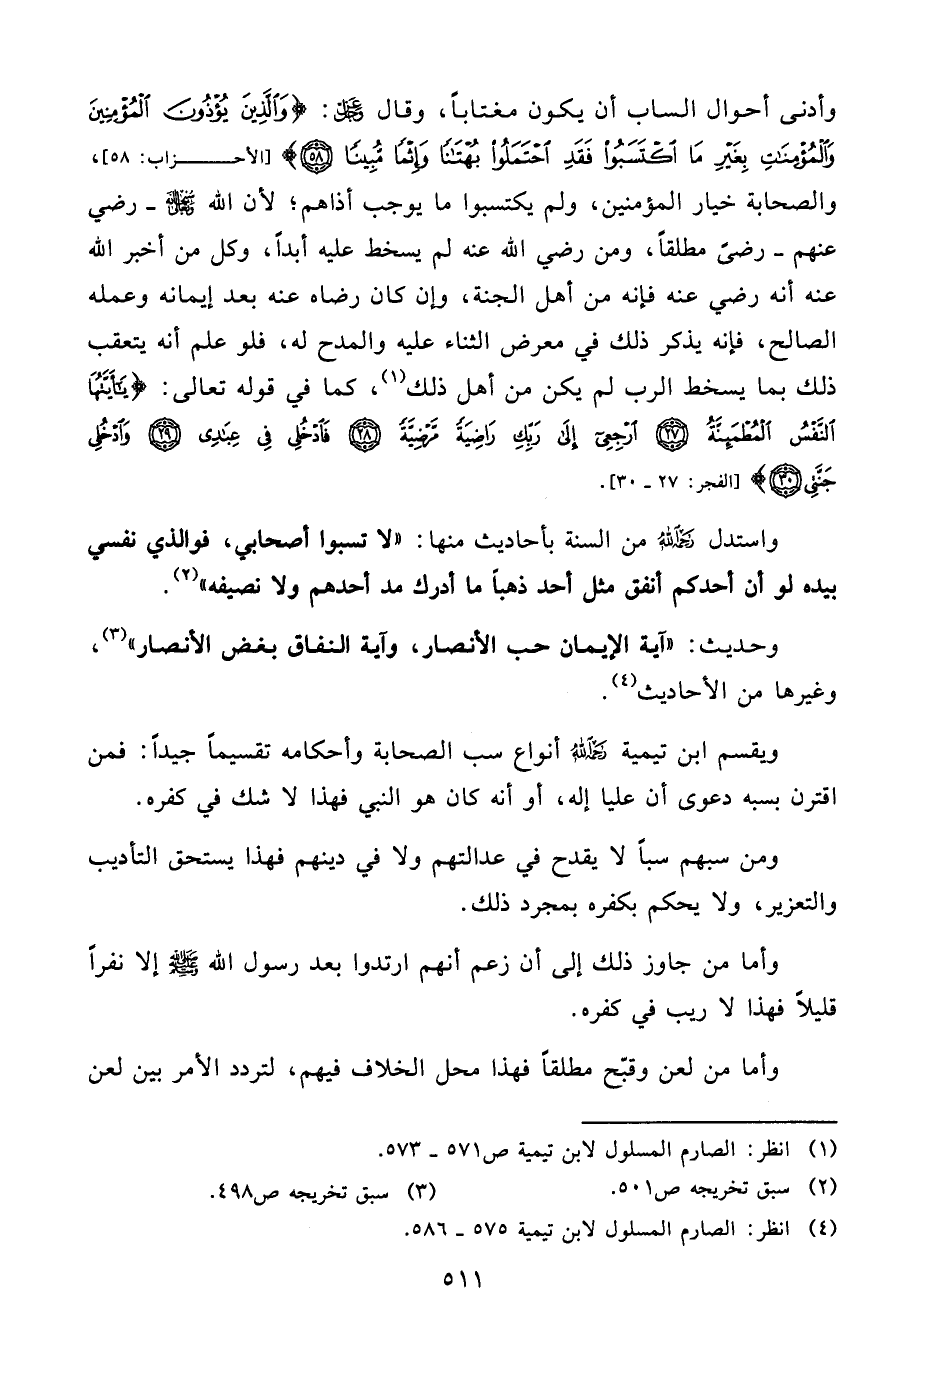 وأدنى أحوال الساب أن يكون مغتاباً، وقال ﷻ: ﴿وَٱلَّذِينَ يُؤْذُونَ ٱلْمُؤْمِنِينَ
وَٱلْمُؤْمِنَٰتِ بِغَيْرِ مَا ٱكْتَسَبُوا۟ فَقَدِ ٱحْتَمَلُوا۟ بُهْتَٰنًا وَإِثْمًا مُّبِينًا ۝٥٨﴾ [الأحـــزاب: ٥٨]،
والصحابة خيار المؤمنين، ولم يكتسبوا ما يوجب أذاهم؛ لأن الله ﷻ ـ رضي
عنهم ـ رضىً مطلقاً، ومن رضي الله عنه لم يسخط عليه أبداً، وكل من أخبر الله
عنه أنه رضي عنه فإنه من أهل الجنة، وإن كان رضاه عنه بعد إيمانه وعمله
الصالح، فإنه يذكر ذلك في معرض الثناء عليه والمدح له، فلو علم أنه يتعقب
ذلك بما يسخط الرب لم يكن من أهل ذلك(١)، كما في قوله تعالى: ﴿يَٰٓأَيَّتُهَا
ٱلنَّفْسُ ٱلْمُطْمَئِنَّةُ ۝٢٧ ٱرْجِعِىٓ إِلَىٰ رَبِّكِ رَاضِيَةً مَّرْضِيَّةً ۝٢٨ فَٱدْخُلِى فِى عِبَٰدِى ۝٢٩ وَٱدْخُلِى
جَنَّتِى ۝٣٠﴾ [الفجر: ٢٧ ـ ٣٠].
واستدل رَحِمَهُ ٱللَّهُ من السنة بأحاديث منها: «لا تسبوا أصحابي، فوالذي نفسي
بيده لو أن أحدكم أنفق مثل أحد ذهباً ما أدرك مد أحدهم ولا نصيفه»(٢).
وحديث: «آية الإيمان حب الأنصار، وآية النفاق بغض الأنصار»(٣)،
وغيرها من الأحاديث(٤).
ويقسم ابن تيمية رَحِمَهُ ٱللَّهُ أنواع سب الصحابة وأحكامه تقسيماً جيداً: فمن
اقترن بسبه دعوى أن عليا إله، أو أنه كان هو النبي فهذا لا شك في كفره.
ومن سبهم سباً لا يقدح في عدالتهم ولا في دينهم فهذا يستحق التأديب
والتعزير، ولا يحكم بكفره بمجرد ذلك.
وأما من جاوز ذلك إلى أن زعم أنهم ارتدوا بعد رسول الله ﷺ إلا نفراً
قليلاً فهذا لا ريب في كفره.
وأما من لعن وقبّح مطلقاً فهذا محل الخلاف فيهم، لتردد الأمر بين لعن
(١) انظر: الصارم المسلول لابن تيمية ص٥٧١ ـ ٥٧٣.
(٢) سبق تخريجه ص٥٠١. (٣) سبق تخريجه ص٤٩٨.
(٤) انظر: الصارم المسلول لابن تيمية ٥٧٥ ـ ٥٨٦.
٥١١